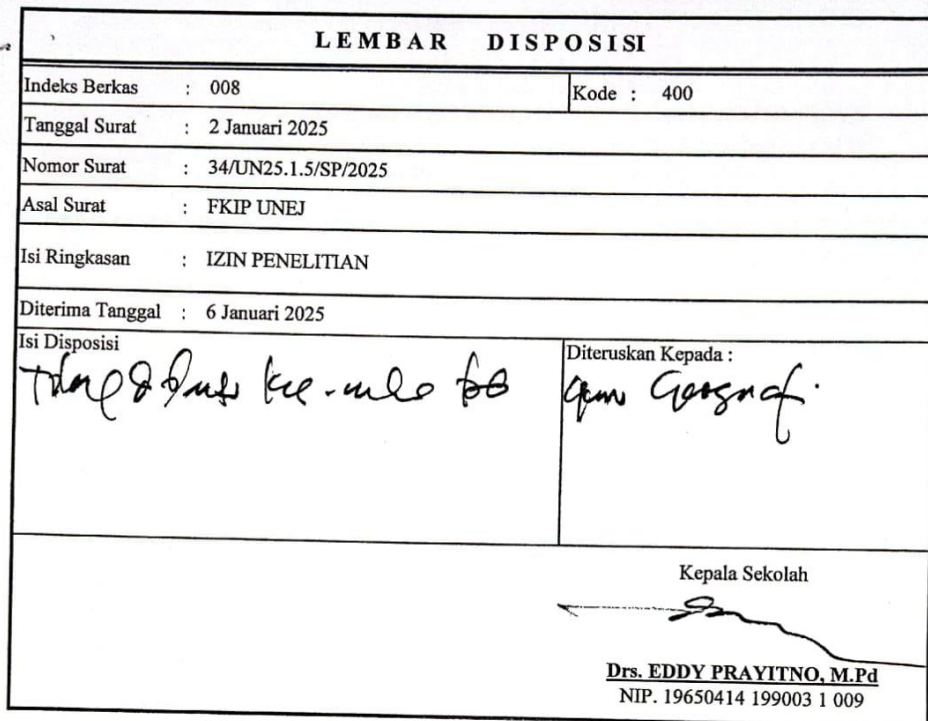 LEMBAR DISPOSISI
Indeks Berkas : 008 Kode : 400
Tanggal Surat : 2 Januari 2025
Nomor Surat : 34/UN25.1.5/SP/2025
Asal Surat : FKIP UNEJ
Isi Ringkasan : IZIN PENELITIAN
Diterima Tanggal : 6 Januari 2025
Isi Disposisi
Diteruskan Kepada :
Kepala Sekolah
Drs. EDDY PRAYITNO, M.Pd
NIP. 19650414 199003 1 009